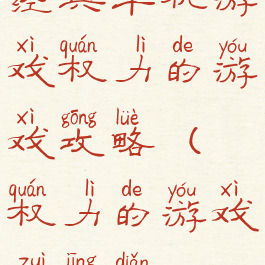 经典单机游
xì quán lì de yóu
戏权力的游
xì gōng lüè
戏攻略（
quán lì de yóu xì
权力的游戏
zuì jīng diǎn